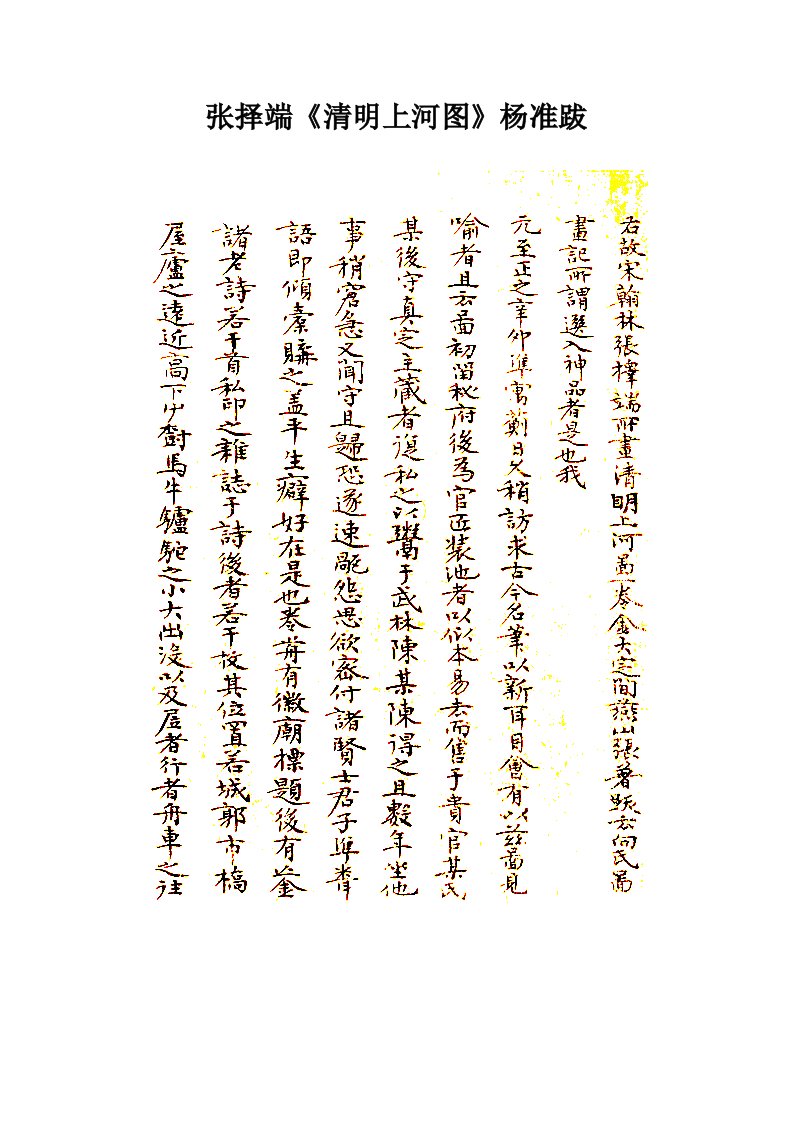 张择端《清明上河图》杨准跋
右故宋翰林張擇端所畫清明上河啚一卷金大定間燕山張著跋云向氏啚
畫記所謂選入神品者是也我
元至正之辛卯準寓薊日久稍訪求古今名筆以新耳目會有以茲啚見
喻者且云啚初留秘府後為官匠装池者以似本易去而售于貴官某氏
某後守真定主藏者復私之以鬻于武林陳某陳得之且數年坐他
事稍窘急又聞守且歸恐遂速戾怨思欲密付諸賢士君子準聞
語即傾橐購之盖平生癖好在是也卷前有徽廟標題後有亡金
諸老詩若干首私印之雜誌于詩後者若干枚其位置若城郭市橋
屋廬之遠近高下艸樹馬牛驢駝之小大出沒以及居者行者舟車之往